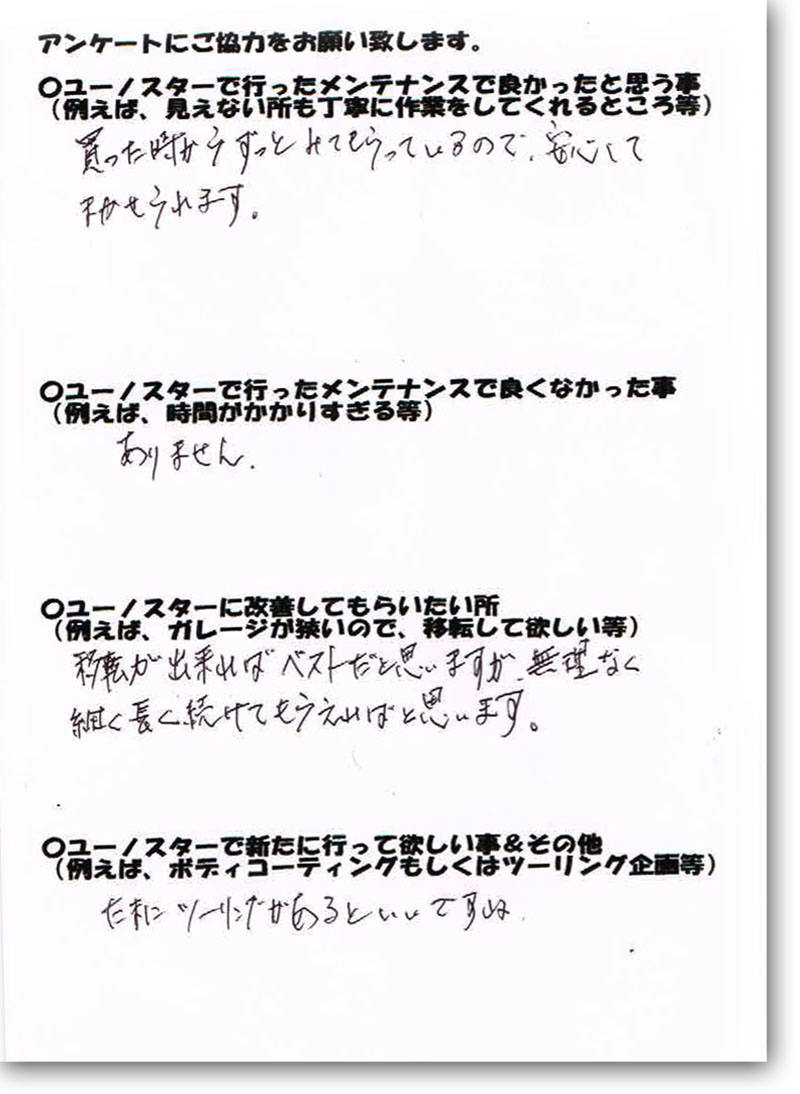 アンケートにご協力をお願い致します。
〇ユーノスターで行ったメンテナンスで良かったと思う事
(例えば、見えない所も丁寧に作業をしてくれるところ等)
買った時からずっとみてもらっているので、安心して
まかせられます。
〇ユーノスターで行ったメンテナンスで良くなかった事
(例えば、時間がかかりすぎる等)
ありません.
〇ユーノスターに改善してもらいたい所
(例えば、ガレージが狭いので、移転して欲しい等)
移転が出来ればベストだと思いますが、無理なく
細く長く続けてもらえればと思います。
〇ユーノスターで新たに行って欲しい事&その他
(例えば、ボディコーティングもしくはツーリング企画等)
たまにツーリングがあるといいですね.